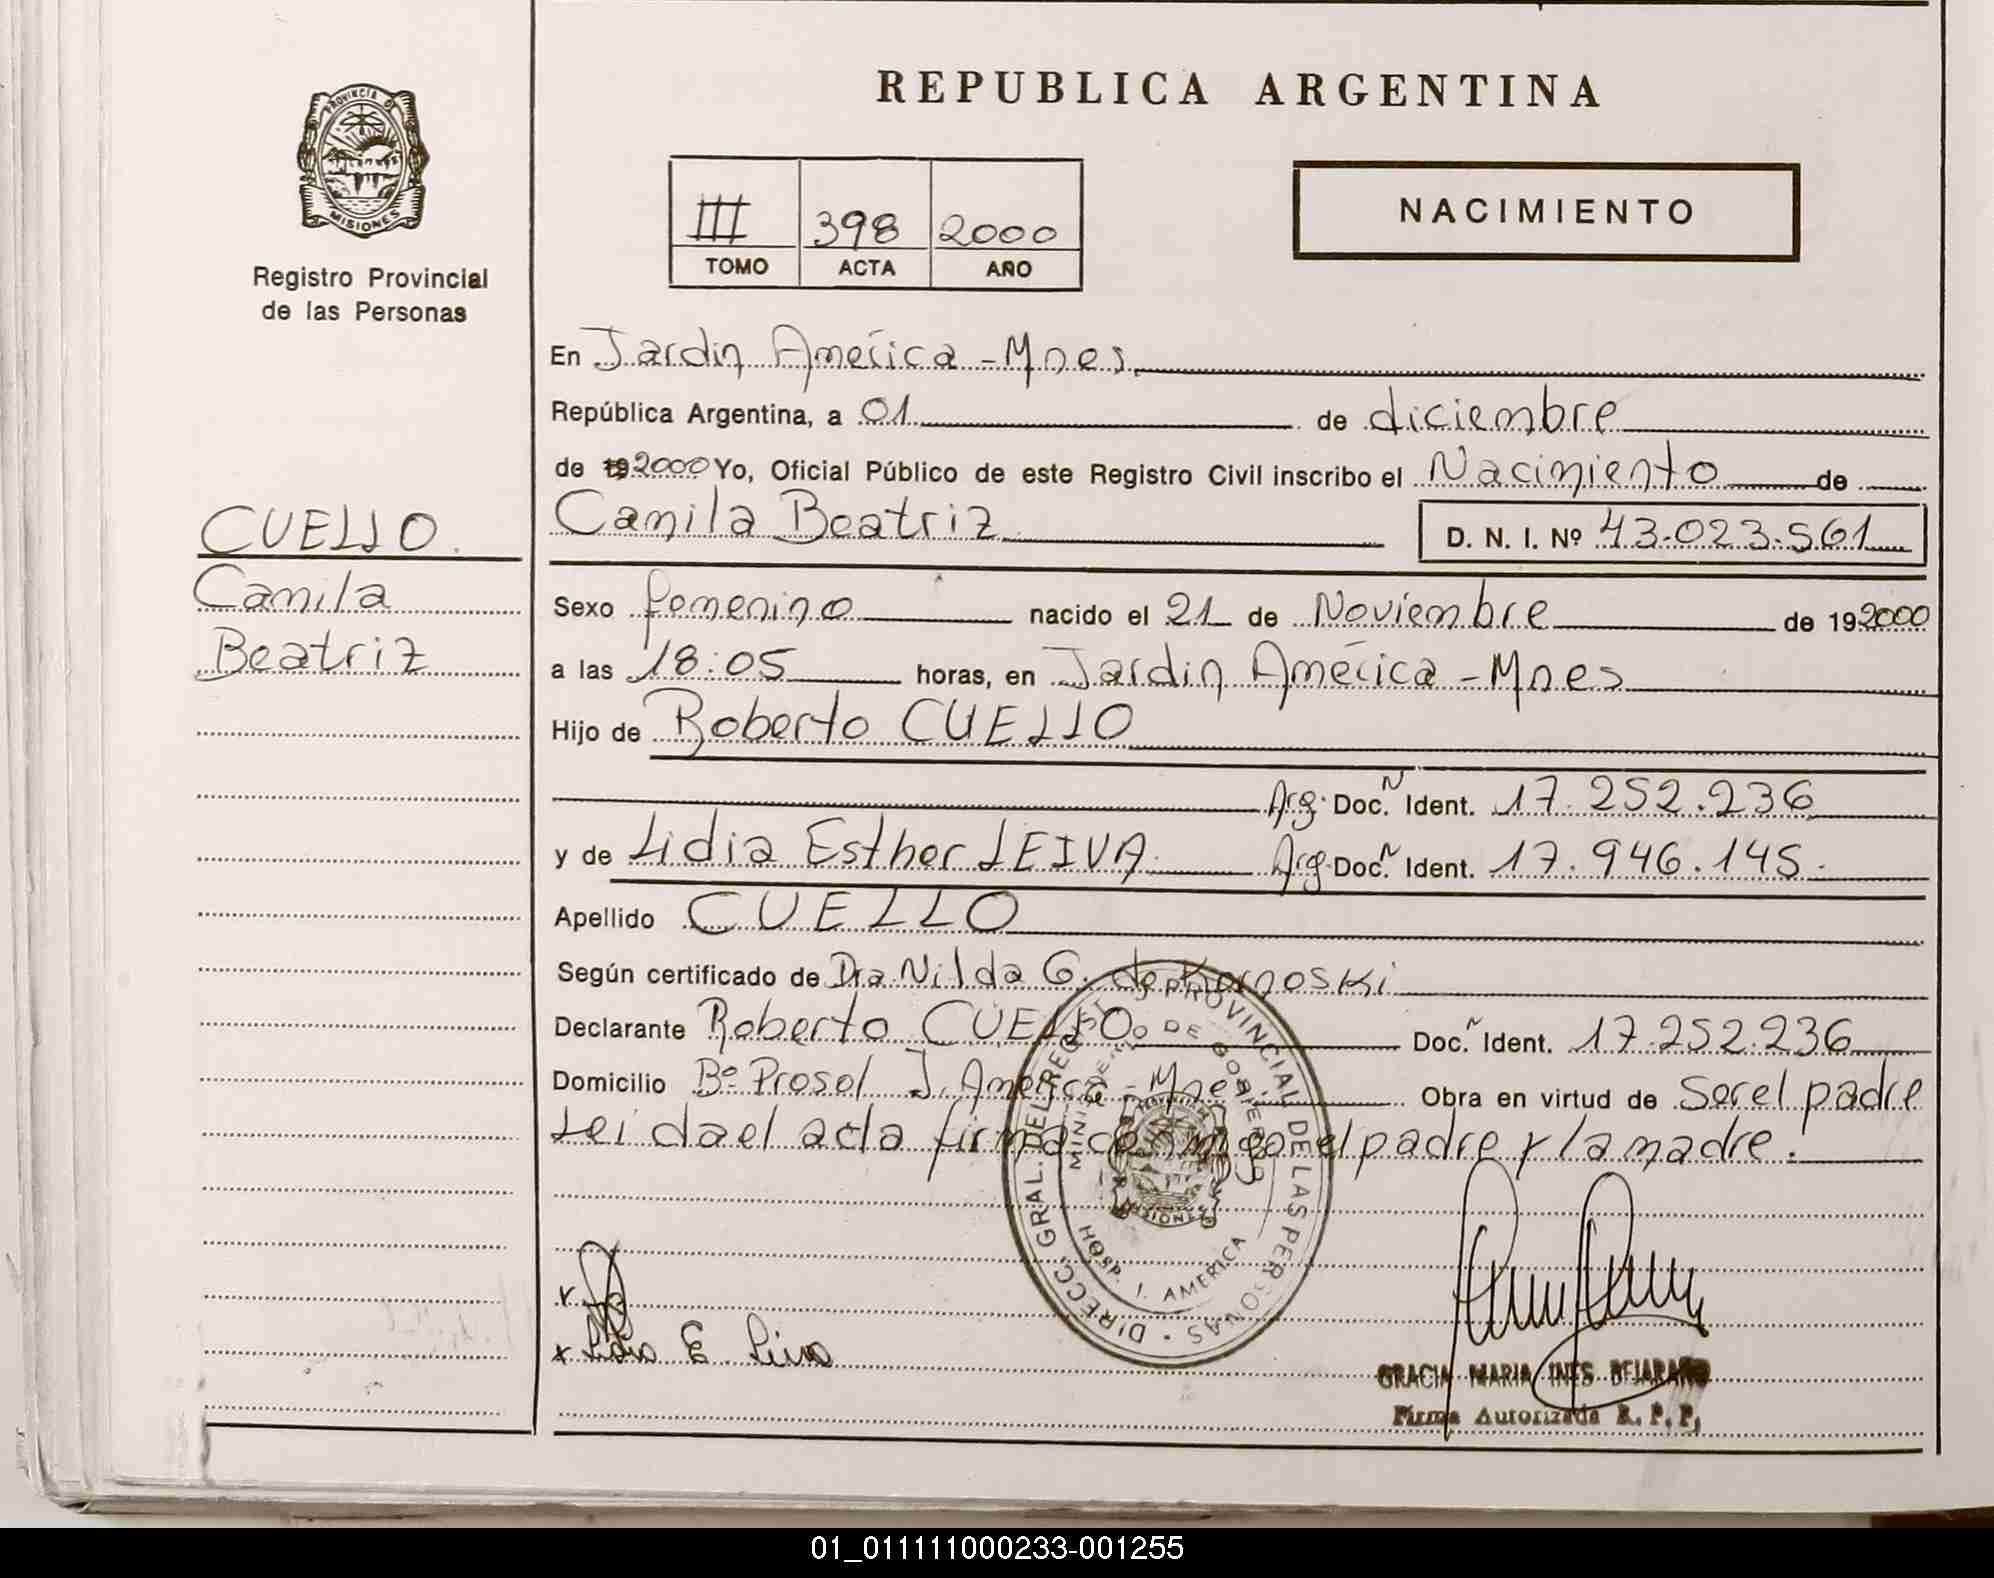 REPUBLICA ARGENTINA
PROVINCIA DE
MISIONES
Registro Provincial
de las Personas
III 398 2000
TOMO ACTA AÑO
NACIMIENTO
En Jardin América - Mnes.
República Argentina, a 01 de diciembre
de 192000 Yo, Oficial Público de este Registro Civil inscribo el Nacimiento de
Camila Beatriz D. N. I. Nº 43.023.561
CUELLO.
Camila
Beatriz
Sexo femenino nacido el 21 de Noviembre de 192000
a las 18:05 horas, en Jardin América - Mnes
Hijo de Roberto CUELLO
Arg. Doc. N Ident. 17.252.236
y de Lidia Esther LEIVA. Arg. Doc. N Ident. 17.946.145.
Apellido CUELLO
Según certificado de Dra Nilda G. de Kornoski
Declarante Roberto CUELLO Doc. N Ident. 17.252.236
Domicilio Bº Prosol J. América - Mnes Obra en virtud de ser el padre
Leida el acta firma conmigo el padre y la madre.
DIRECC. GRAL. DEL REGIST. PROVINCIAL DE LAS PERSONAS
MINISTERIO DE GOBIERNO
HOSP. J. AMERICA
MISIONES
x
x Lidia E. Leiva
GRACIA MARIA INES BEJARANO
Firma Autorizada R. P. P.
01_011111000233-001255